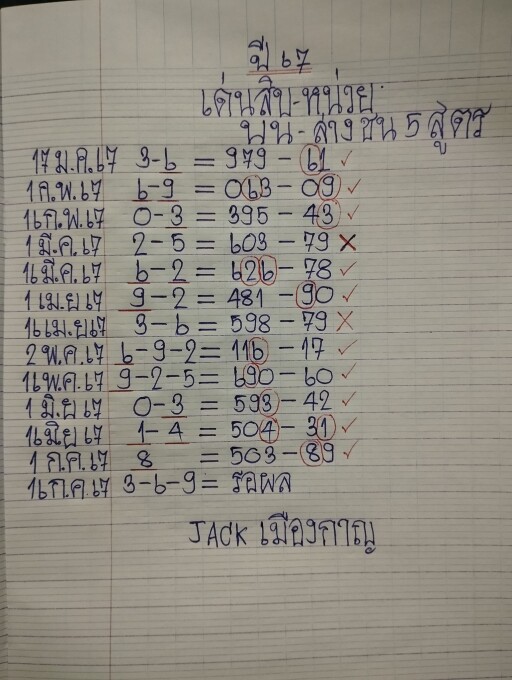 ปี 67
เด่นสิบ-หน่วย
บน-ล่าง ชน 5 สูตร
17 ม.ค.67 3-6 = 979 - 61 ✓
1 ก.พ.67 6-9 = 063 - 09 ✓
16 ก.พ.67 0-3 = 395 - 43 ✓
1 มี.ค.67 2-5 = 603 - 79 ✗
16 มี.ค.67 6-2 = 626 - 78 ✓
1 เม.ย67 9-2 = 481 - 90 ✓
16 เม.ย67 3-6 = 598 - 79 ✗
2 พ.ค.67 6-9-2 = 116 - 17 ✓
16 พ.ค.67 9-2-5 = 690 - 60 ✓
1 มิ.ย67 0-3 = 593 - 42 ✓
16 มิย67 1-4 = 504 - 31 ✓
1 ก.ค.67 8 = 503 - 89 ✓
16 ก.ค.67 3-6-9 = รอผล
JACK เมืองกาญ